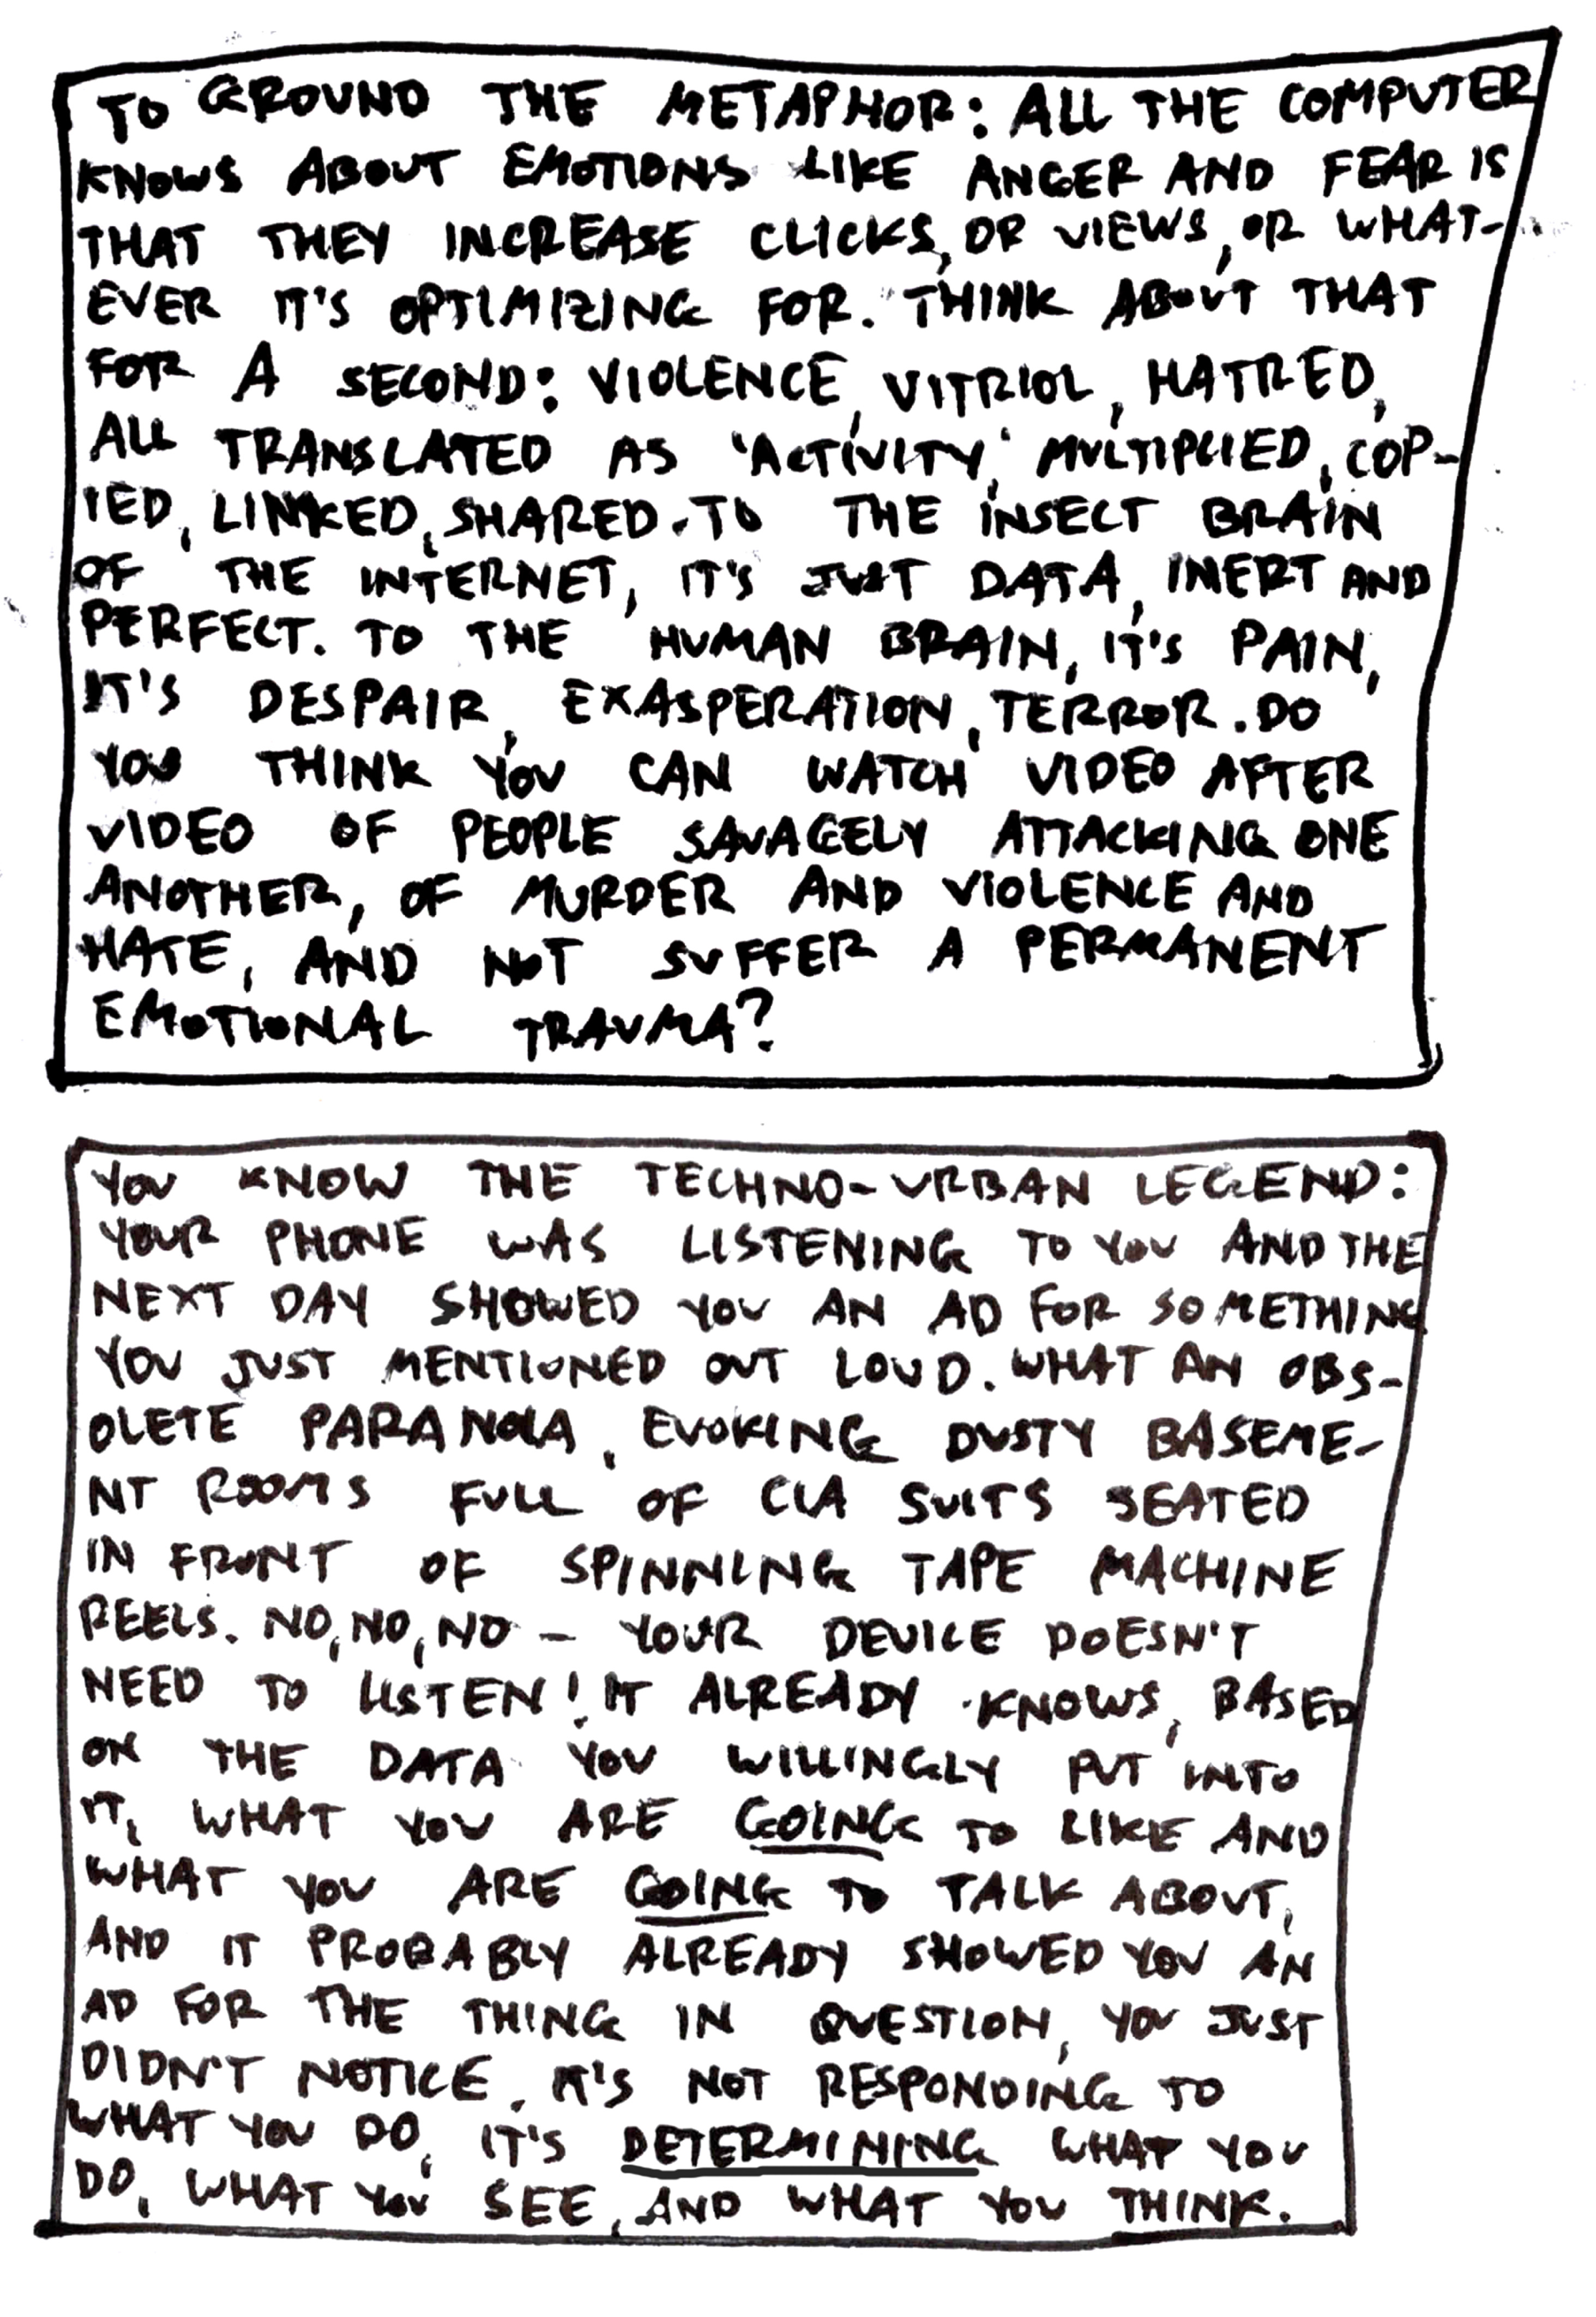 TO GROUND THE METAPHOR: ALL THE COMPUTER
KNOWS ABOUT EMOTIONS LIKE ANGER AND FEAR IS
THAT THEY INCREASE CLICKS, OR VIEWS, OR WHAT-
EVER IT'S OPTIMIZING FOR. THINK ABOUT THAT
FOR A SECOND: VIOLENCE, VITRIOL, HATRED,
ALL TRANSLATED AS 'ACTIVITY,' MULTIPLIED, COP-
IED, LINKED, SHARED. TO THE INSECT BRAIN
OF THE INTERNET, IT'S JUST DATA, INERT AND
PERFECT. TO THE HUMAN BRAIN, IT'S PAIN,
IT'S DESPAIR, EXASPERATION, TERROR. DO
YOU THINK YOU CAN WATCH VIDEO AFTER
VIDEO OF PEOPLE SAVAGELY ATTACKING ONE
ANOTHER, OF MURDER AND VIOLENCE AND
HATE, AND NOT SUFFER A PERMANENT
EMOTIONAL TRAUMA?
YOU KNOW THE TECHNO-URBAN LEGEND:
YOUR PHONE WAS LISTENING TO YOU AND THE
NEXT DAY SHOWED YOU AN AD FOR SOMETHING
YOU JUST MENTIONED OUT LOUD. WHAT AN OBS-
OLETE PARANOIA, EVOKING DUSTY BASEME-
NT ROOMS FULL OF CIA SUITS SEATED
IN FRONT OF SPINNING TAPE MACHINE
REELS. NO, NO, NO - YOUR DEVICE DOESN'T
NEED TO LISTEN! IT ALREADY KNOWS, BASED
ON THE DATA YOU WILLINGLY PUT INTO
IT, WHAT YOU ARE GOING TO LIKE AND
WHAT YOU ARE GOING TO TALK ABOUT,
AND IT PROBABLY ALREADY SHOWED YOU AN
AD FOR THE THING IN QUESTION, YOU JUST
DIDN'T NOTICE. IT'S NOT RESPONDING TO
WHAT YOU DO, IT'S DETERMINING WHAT YOU
DO, WHAT YOU SEE, AND WHAT YOU THINK.